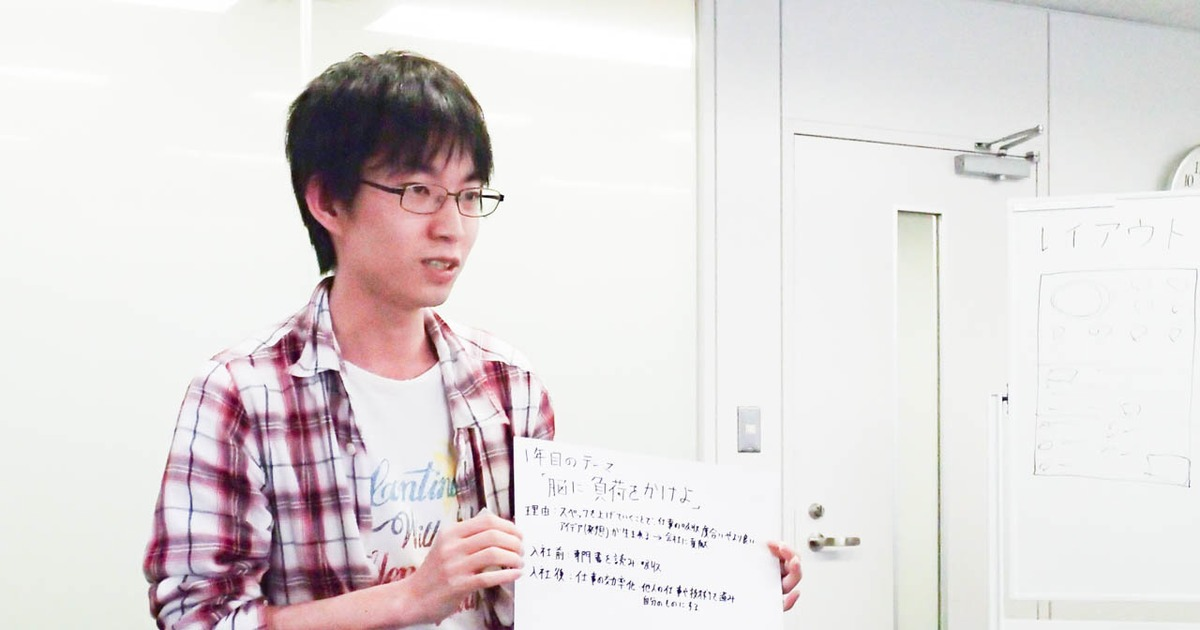 1年目のテーマ
「脳に負荷をかけよ」
理由：スペックを上げていくことで、仕事の吸収度合いやより良い
アイデア(発想)が生まれる → 会社に貢献
入社前：専門書を読み 吸収
入社後：仕事の効率化 他人の仕事や技術を盗み
自分のものにする
レイアウト
10